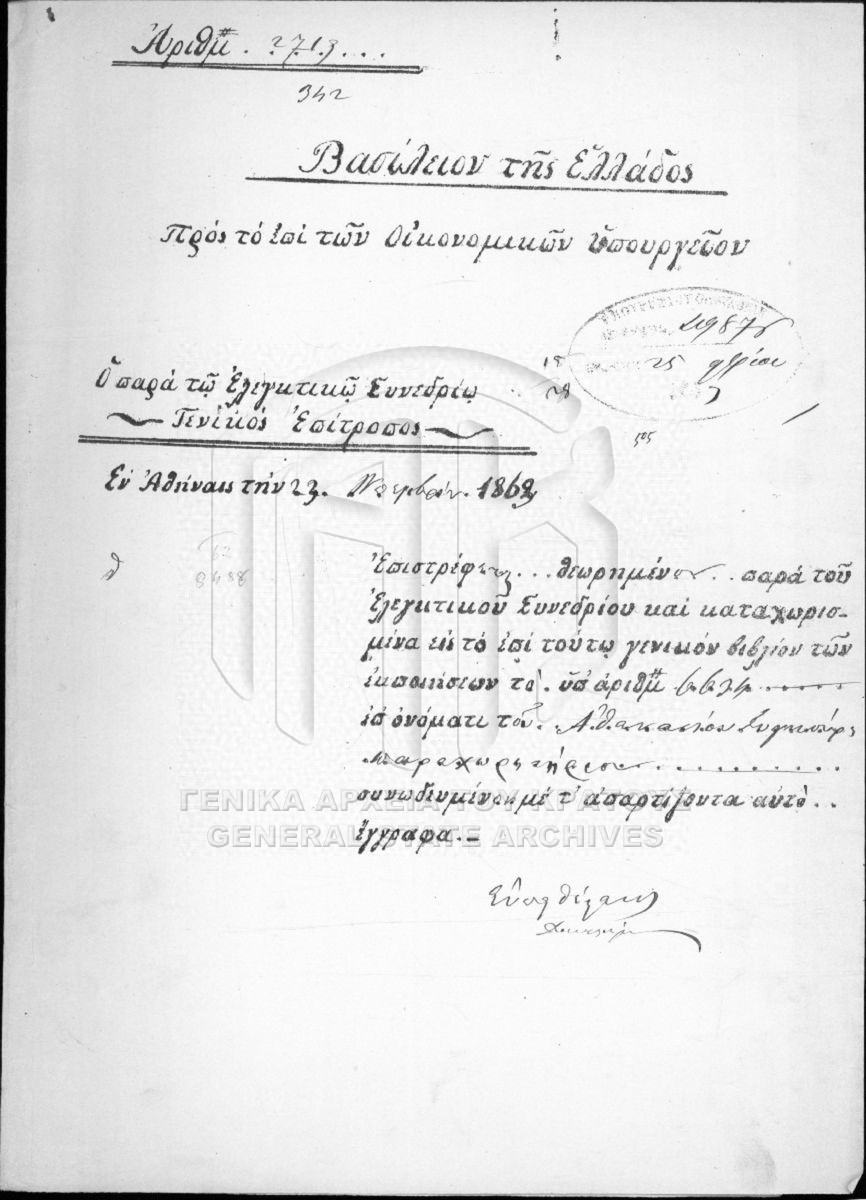 Ἀριθμ. 2713...
342
Βασίλειον τῆς Ἑλλάδος
Πρός τό ἐπί τῶν Οἰκονομικῶν Ὑπουργεῖον
25
Ὁ παρά τῷ Ἐλεγκτικῷ Συνεδρίῳ
Γενικός Ἐπίτροπος
505
Ἐν Ἀθήναις τήν 23. 1862
Ἐπιστρέφεται... θεωρημένον.. παρά τοῦ
Ἐλεγκτικοῦ Συνεδρίου καί καταχωρισ-
μένα εἰς τό ἐπί τούτῳ γενικόν βιβλίον τῶν
ἐκποιήσεων τό. ὑπ' ἀριθμ
ἐπ' ὀνόματι τοῦ. Ἀθανασίου
παραχωρητήριον
συνωδευμένον μέ τ' ἀπαρτίζοντα αὐτό..
ἔγγραφα.–
ΓΕΝΙΚΑ ΑΡΧΕΙΑ ΤΟΥ ΚΡΑΤΟΥΣ
GENERAL STATE ARCHIVES